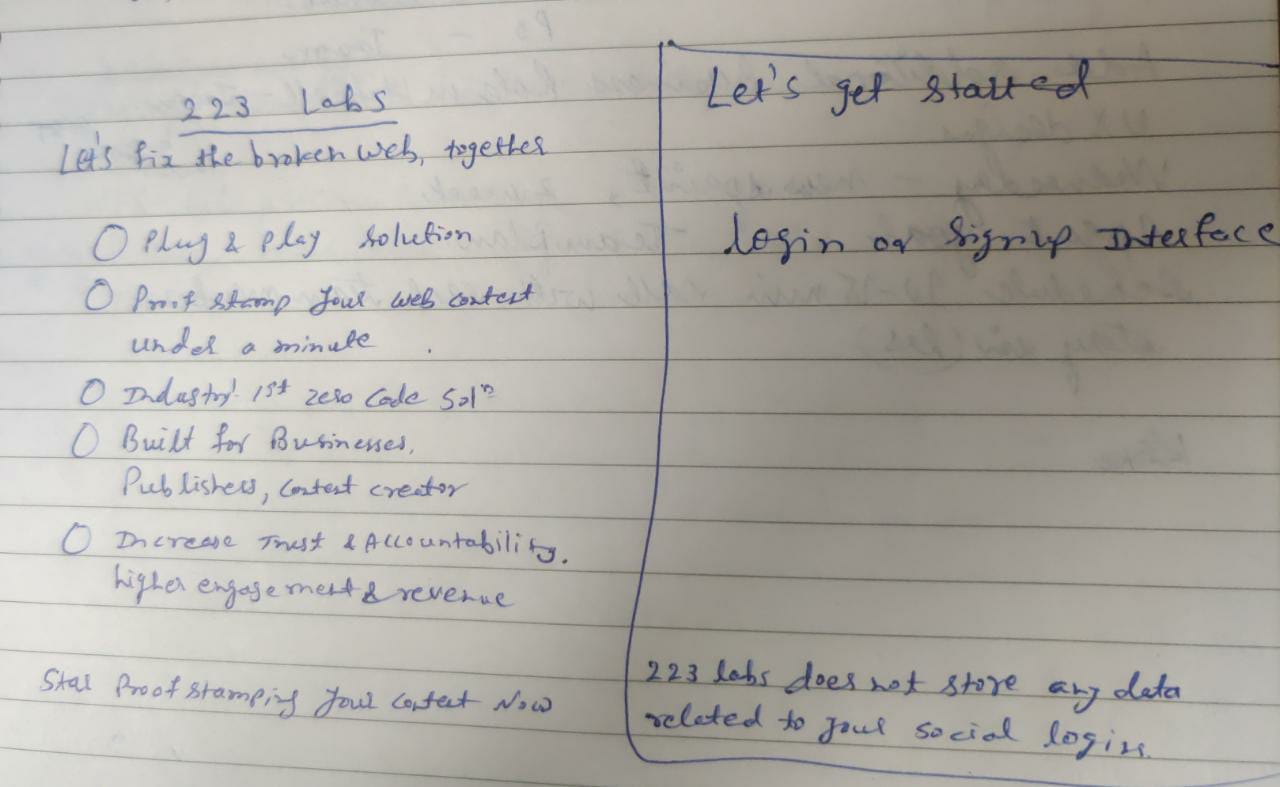 223 Labs
Let's fix the broken web, together
Plug & Play solution
Proof stamp your web content
under a minute
Industry' 1st zero code Solⁿ
Built for Businesses,
Publishers, content creator
Increase Trust & Accountability.
higher engagement & revenue
Star Proof stamping your content Now
Let's get started
login or Signup Interface
223 labs does not store any data
related to your social login.